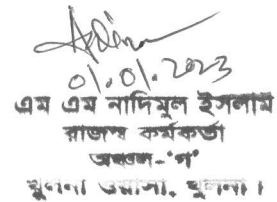 01.01.2023
এম এম নাদিমুল ইসলাম
রাজস্ব কর্মকর্তা
অঞ্চল-‘গ’
খুলনা ওয়াসা, খুলনা।